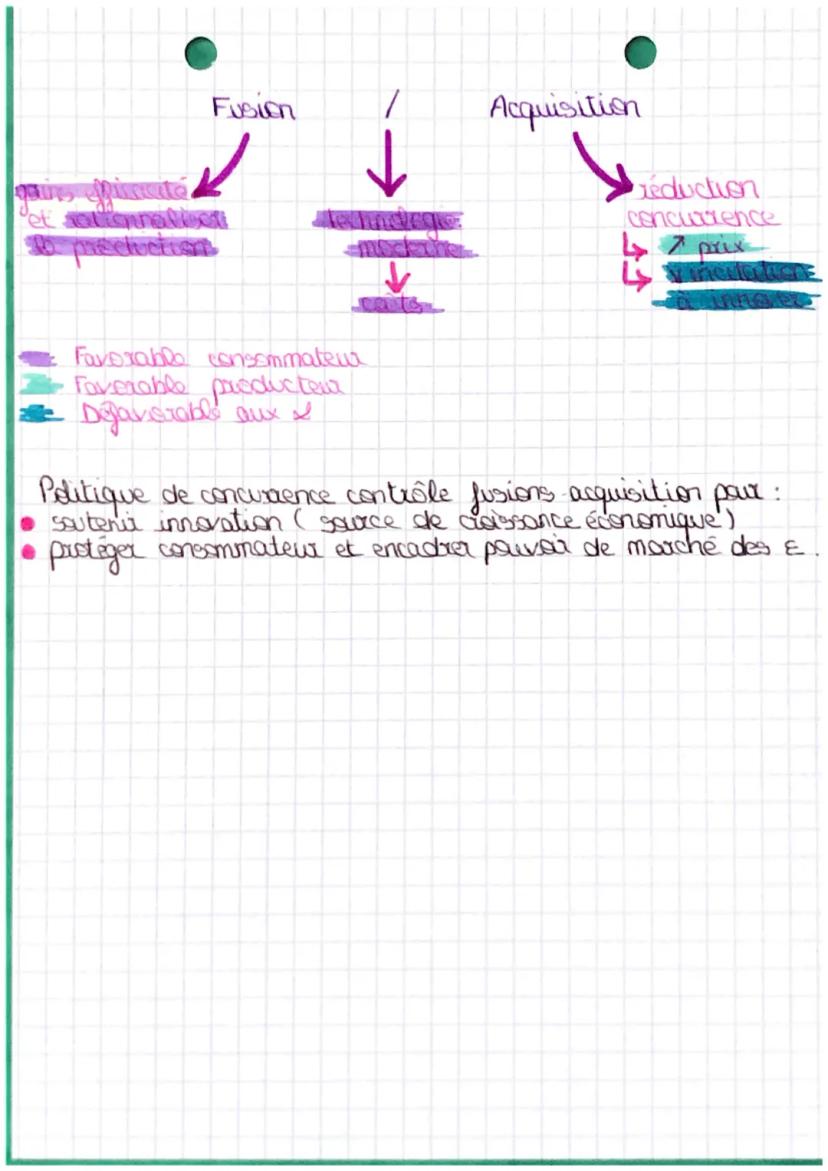 Fusion / Acquisition
gains efficacité
et rationnaliser
la production
technologie
moderne
↓
coûts
réduction
concurrence
↳ ↗ prix
↳ ↘ incitation
à innover
Favorable consommateur
Favorable producteur
Défavorable aux 2
Politique de concurrence contrôle fusions-acquisition pour :
• soutenir innovation ( source de croissance économique)
• protéger consommateur et encadrer pouvoir de marché des ε.